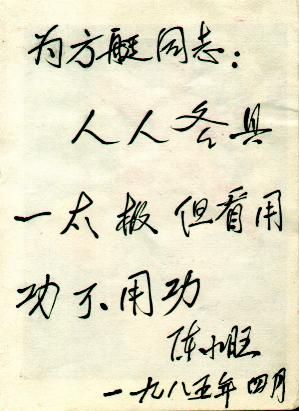 为方艇同志：
人人各具
一太极但看用
功不用功
陈小旺
一九八五年四月